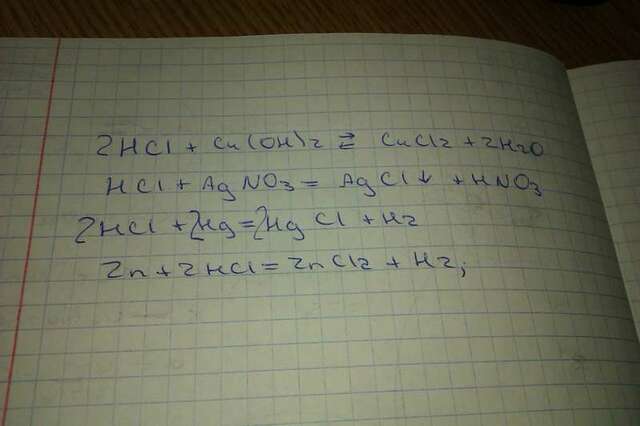 2HCl + Cu(OH)2 ⇄ CuCl2 + 2H2O
HCl + AgNO3 = AgCl↓ + HNO3
2HCl + 2Hg = 2HgCl + H2
Zn + 2HCl = ZnCl2 + H2;